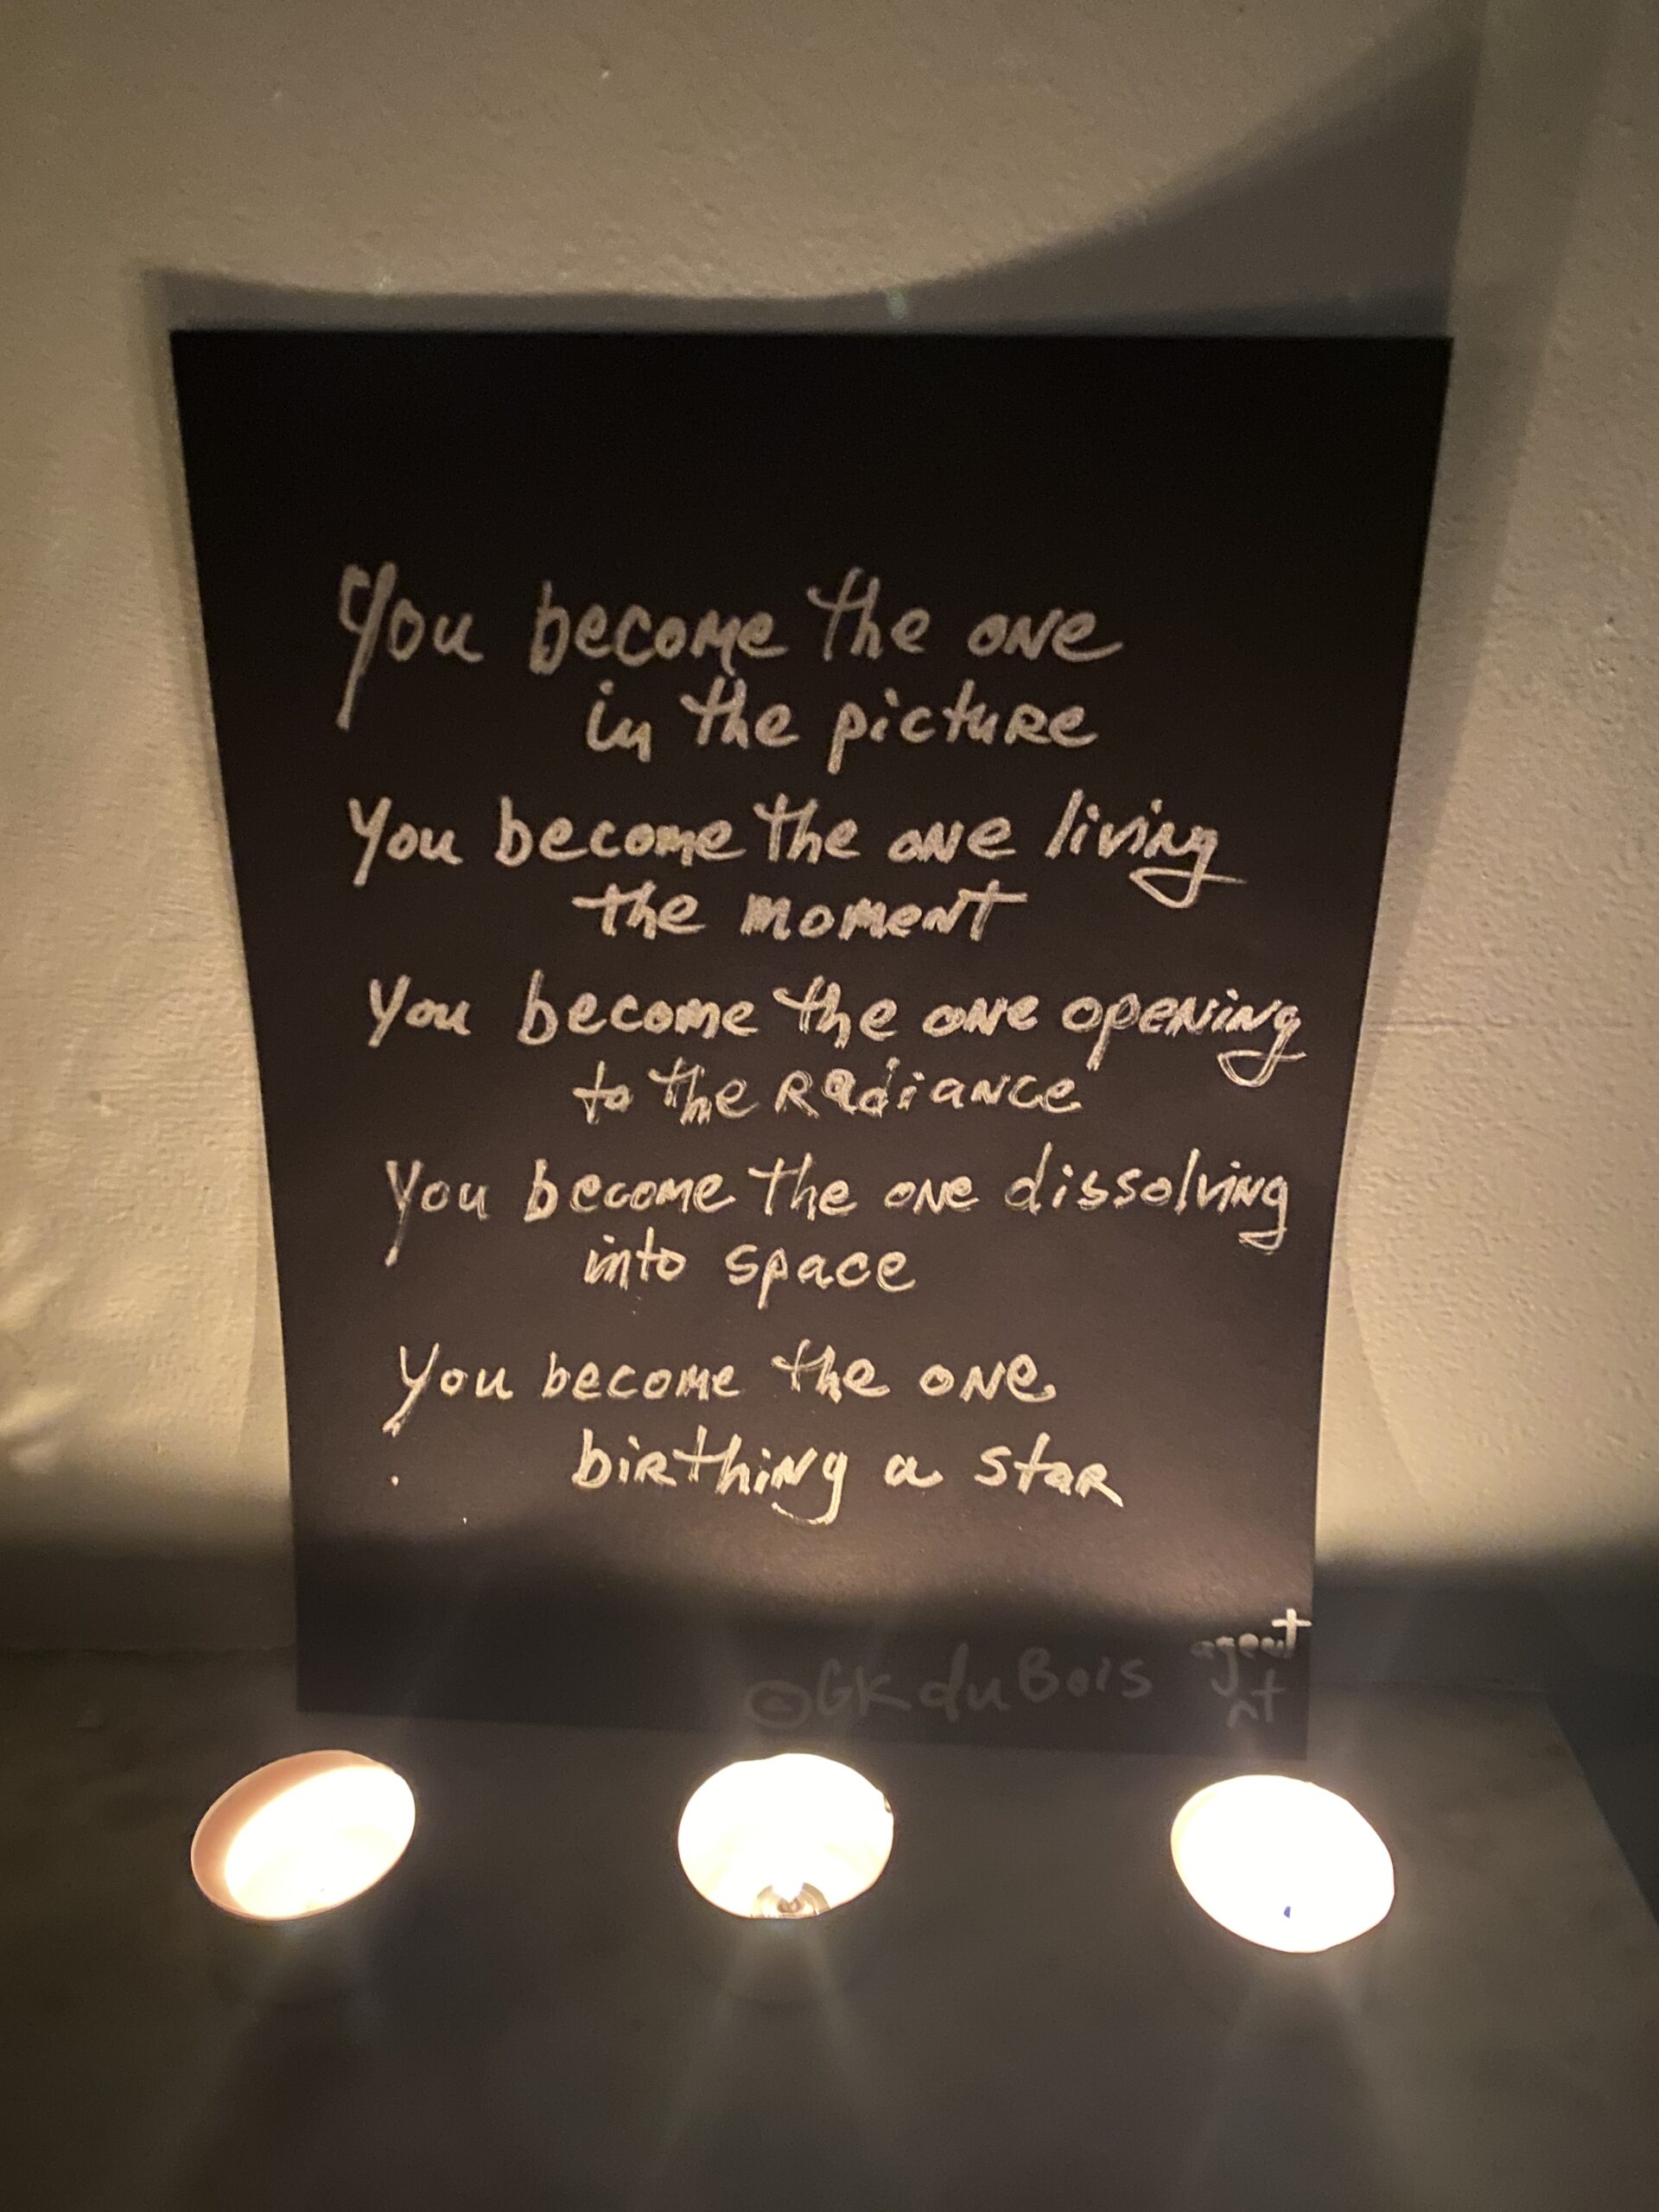 You become the one
in the picture
You become the one living
the moment
You become the one opening
to the Radiance
You become the one dissolving
into space
You become the one
birthing a star
©GK duBois
agent